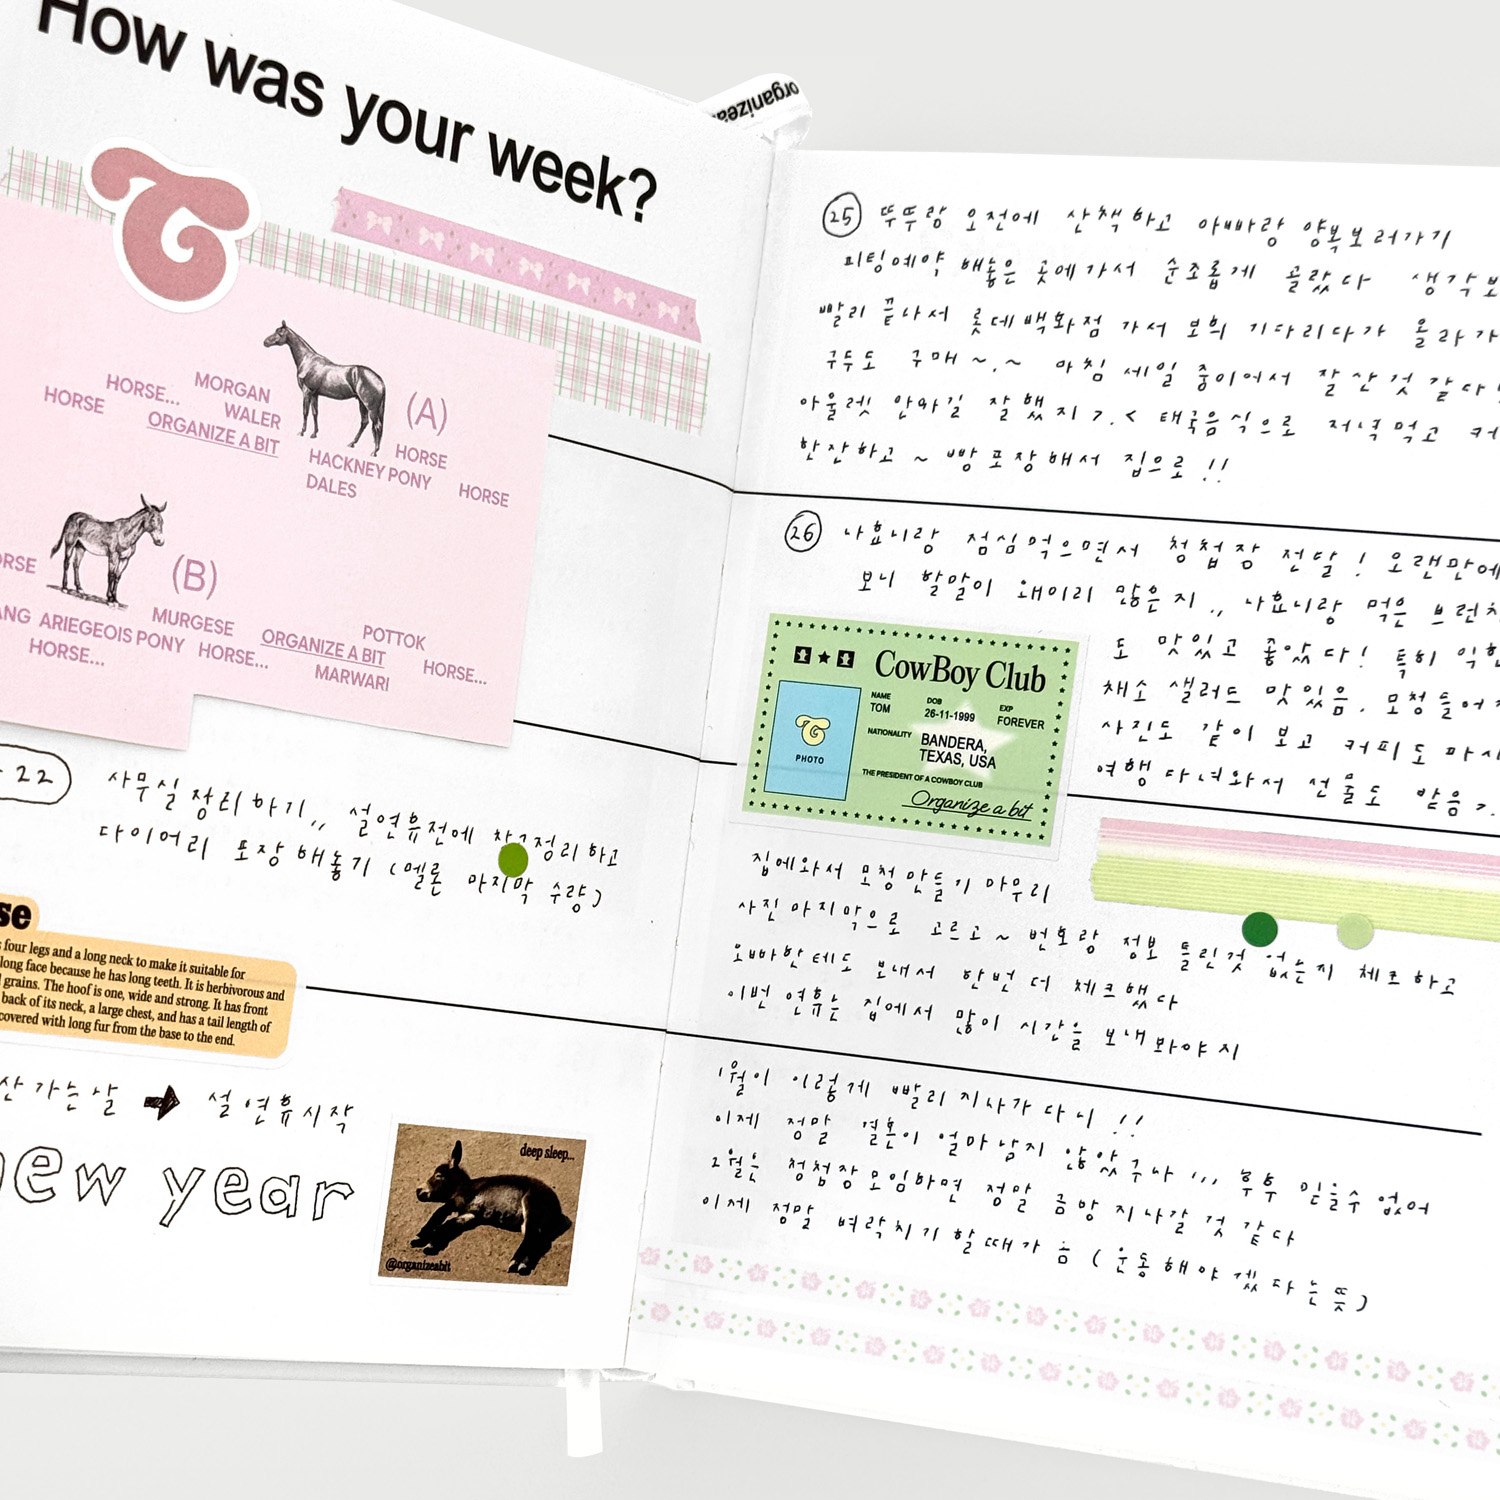 How was your week?
organizea
HORSE... MORGAN
HORSE WALER (A)
ORGANIZE A BIT HORSE
HACKNEY PONY HORSE
DALES
(B)
MURGESE
ARIEGEOIS PONY ORGANIZE A BIT POTTOK
HORSE... HORSE... MARWARI HORSE...
22 사무실 정리하기,, 설연휴전에 정리하고
다이어리 포장해놓기 (멜론 마지막 수량)
four legs and a long neck to make it suitable for
long face because he has long teeth. It is herbivorous and
grains. The hoof is one, wide and strong. It has front
back of its neck, a large chest, and has a tail length of
covered with long fur from the base to the end.
가는날 → 설연휴시작
new year
deep sleep...
@organizeabit
25 뚜뚜랑 오전에 산책하고 아빠랑 양복보러가기
피팅예약 해놓은 곳에가서 순조롭게 골랐다 생각보
빨리 끝나서 롯데백화점 가서 보희 기다리다가 올라가
구두도 구매~.~ 마침 세일 중이어서 잘 산것 같다
아울렛 안와길 잘했지 >.< 태국음식으로 저녁먹고 커
한잔하고~ 빵 포장해서 집으로!!
26 나효니랑 점심먹으면서 청첩장 전달! 오랜만에
보니 할말이 왜이리 많은지,, 나효니랑 먹은 브런치
도 맛있고 좋았다! 특히
채소 샐러드 맛있음. 모청들어
사진도 같이 보고 커피도 마시
여행 다녀와서 선물도 받음 >.
CowBoy Club
NAME TOM
DOB 26-11-1999
EXP FOREVER
NATIONALITY BANDERA,
TEXAS, USA
PHOTO
THE PRESIDENT OF A COWBOY CLUB
Organize a bit
집에와서 모청 만들기 마무리
사진 마지막으로 고르고~ 번호랑 정보 틀린것 없는지 체크하고
오빠한테도 보내서 한번 더 체크했다
이번 연휴는 집에서 많이 시간을 보내봐야지
1월이 이렇게 빨리 지나가다니!!
이제 정말 결혼이 얼마남지 않았구나,,, 후후 믿을수 없어
2월은 청첩장모임하면 정말 금방 지나갈 것 같다
이제 정말 벼락치기 할때가 음 (운동해야겠다는 뜻)